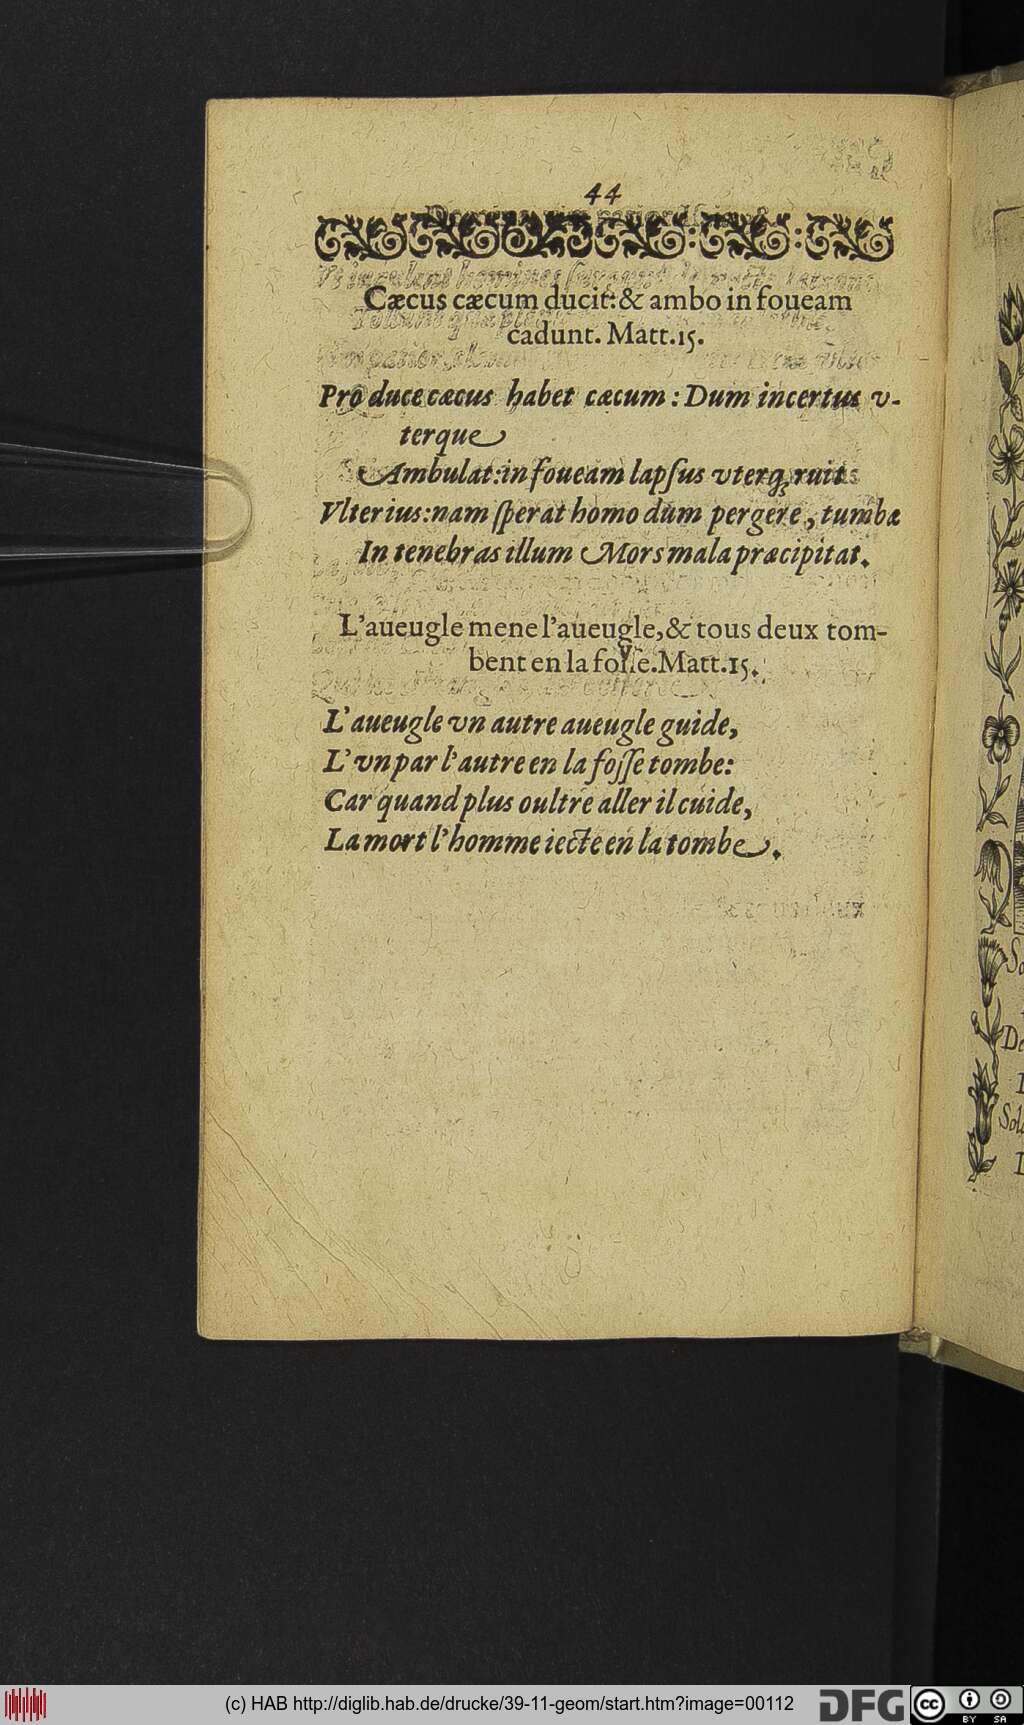 44
Cæcus cæcum ducit: & ambo in foueam
cadunt. Matt.15.
Pro duce cæcus habet cæcum: Dum incertus v-
terque
Ambulat: in foueam lapſus vterq; ruit
Vlterius: nam ſperat homo dum pergere, tumbæ
In tenebras illum Mors mala præcipitat.
L'aueugle mene l'aueugle, & tous deux tom-
bent en la foſſe. Matt.15.
L'aueugle vn autre aueugle guide,
L'vn par l'autre en la foſſe tombe:
Car quand plus oultre aller il cuide,
La mort l'homme iecte en la tombe.
(c) HAB http://diglib.hab.de/drucke/39-11-geom/start.htm?image=00112
DFG
cc
BY SA